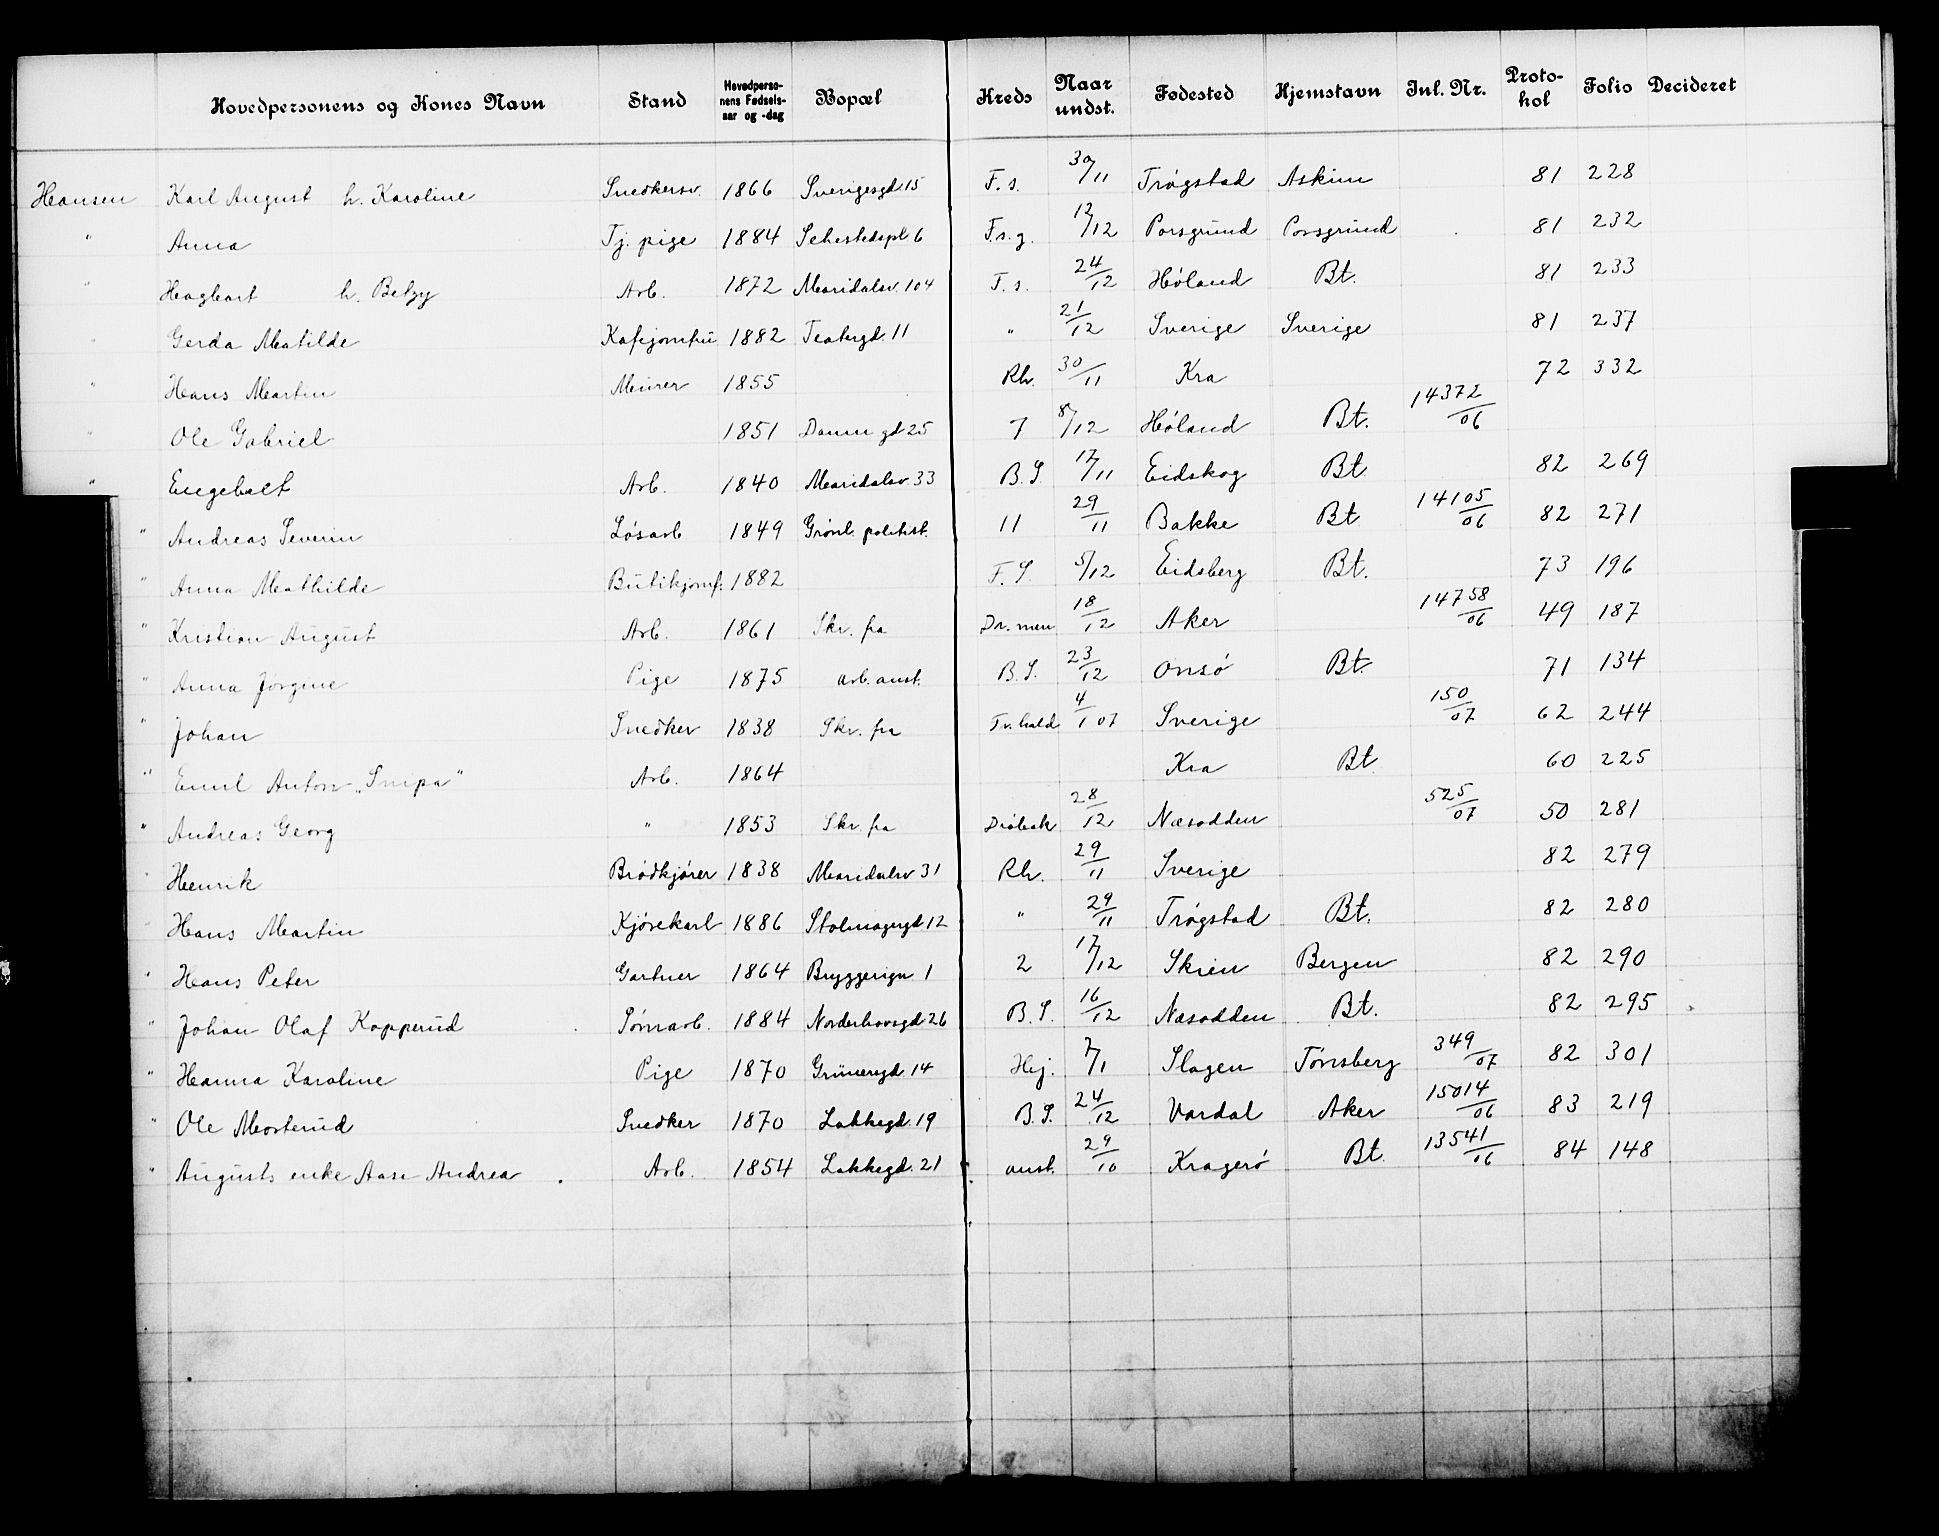 Hovedpersonens og Kones Navn Stand Hovedpersonens Fødselsaar og -dag Bopæl Kreds Naar undst. Fødested Hjemstavn Inl. Nr. Protokol Folio Decideret
Hansen Karl August h. Karoline Snedkersv. 1866 Sverigesgd. 15 F. s. 30/11 Trøgstad Askim 81 228
" Anna Tj. pige 1884 Sehestedspl. 6 F.s.g. 12/12 Porsgrund Porsgrund 81 232
" Hagbart h. Betzy Arb. 1872 Maridalsv. 104 F. s. 24/12 Høland Bt. 81 233
" Gerda Matilde Kafejomfru 1882 Teatergd. 11 " 21/12 Sverige Sverige 81 237
" Hans Martin Murer 1855 Rh. 30/11 Kra 72 332
" Ole Gabriel 1851 Damm gd 25 7 8/12 Høland Bt. 14372/06
" Engebret Arb. 1840 Maridalsv. 33 B. S. 17/11 Eidskog Bt 82 269
" Andreas Severin Løsarb 1849 Grønl. politist. 11 29/11 Bakke Bt 14105/06 82 271
" Anna Mathilde Butikjomf. 1882 F. S. 5/12 Eidsberg Bt. 73 196
" Kristian August Arb. 1861 Skr. fra Dr. men 18/12 Aker 14758/06 49 187
" Anna Jørgine Pige 1875 arb. anst. B. S. 23/12 Onsø Bt. 71 134
" Johan Snedker 1838 Skr. fra Fr. hald 4/1 07 Sverige 150/07 62 244
" Emil Anton "Snipa" Arb. 1864 Kra Bt 60 225
" Andreas Georg " 1853 Skr. fra Drøbak 28/12 Næsodden 525/07 50 281
Henrik Brødkjører 1838 Maridalsv 31 Rh. 29/11 Sverige 82 279
" Hans Martin Kjørekarl 1886 Stolmagergd 12 " 29/11 Trøgstad Bt. 82 280
" Hans Peter Gartner 1864 Bryggerign 1 2 17/12 Skien Bergen 82 290
" Johan Olaf Kopperud Tømarb. 1884 Norderhovsgd 26 B. S. 16/12 Næsodden Bt. 82 295
" Hanna Karoline Pige 1870 Grünergd. 14 Hij. 7/1 Slagen Tønsberg 349/07 82 301
" Ole Mosterud Snedker 1870 Lakkegd. 19 B. S. 24/12 Vardal Aker 15014/06 83 219
" Augusts enke Aase Andrea Arb. 1854 Lakkegd. 21 anst. 29/10 Kragerø Bt. 13541/06 84 148